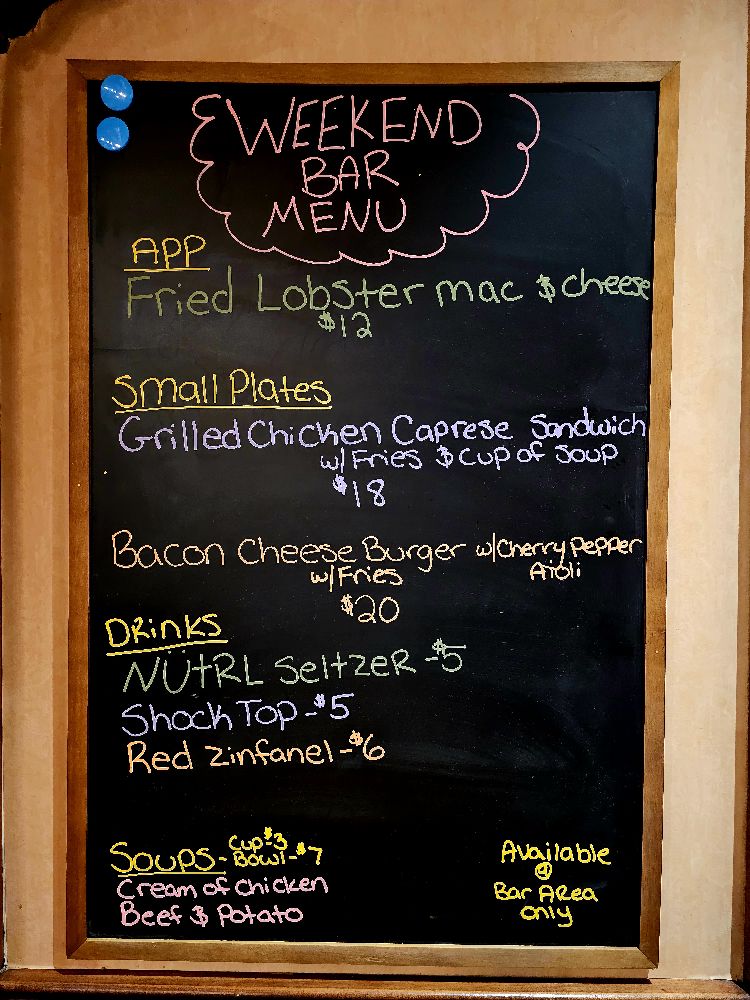 WEEKEND
BAR
MENU
APP
Fried Lobster mac & cheese
$12
Small Plates
Grilled Chicken Caprese Sandwich
w/ Fries & cup of soup
$18
Bacon Cheese Burger w/ Cherry Pepper
Aioli
w/ Fries
$20
DRINKS
NUTRL SeltzeR - $5
Shock Top - $5
Red Zinfanel - $6
Soups - Cup - $3
Bowl - $7
Cream of chicken
Beef & Potato
Available
@
Bar Area
only